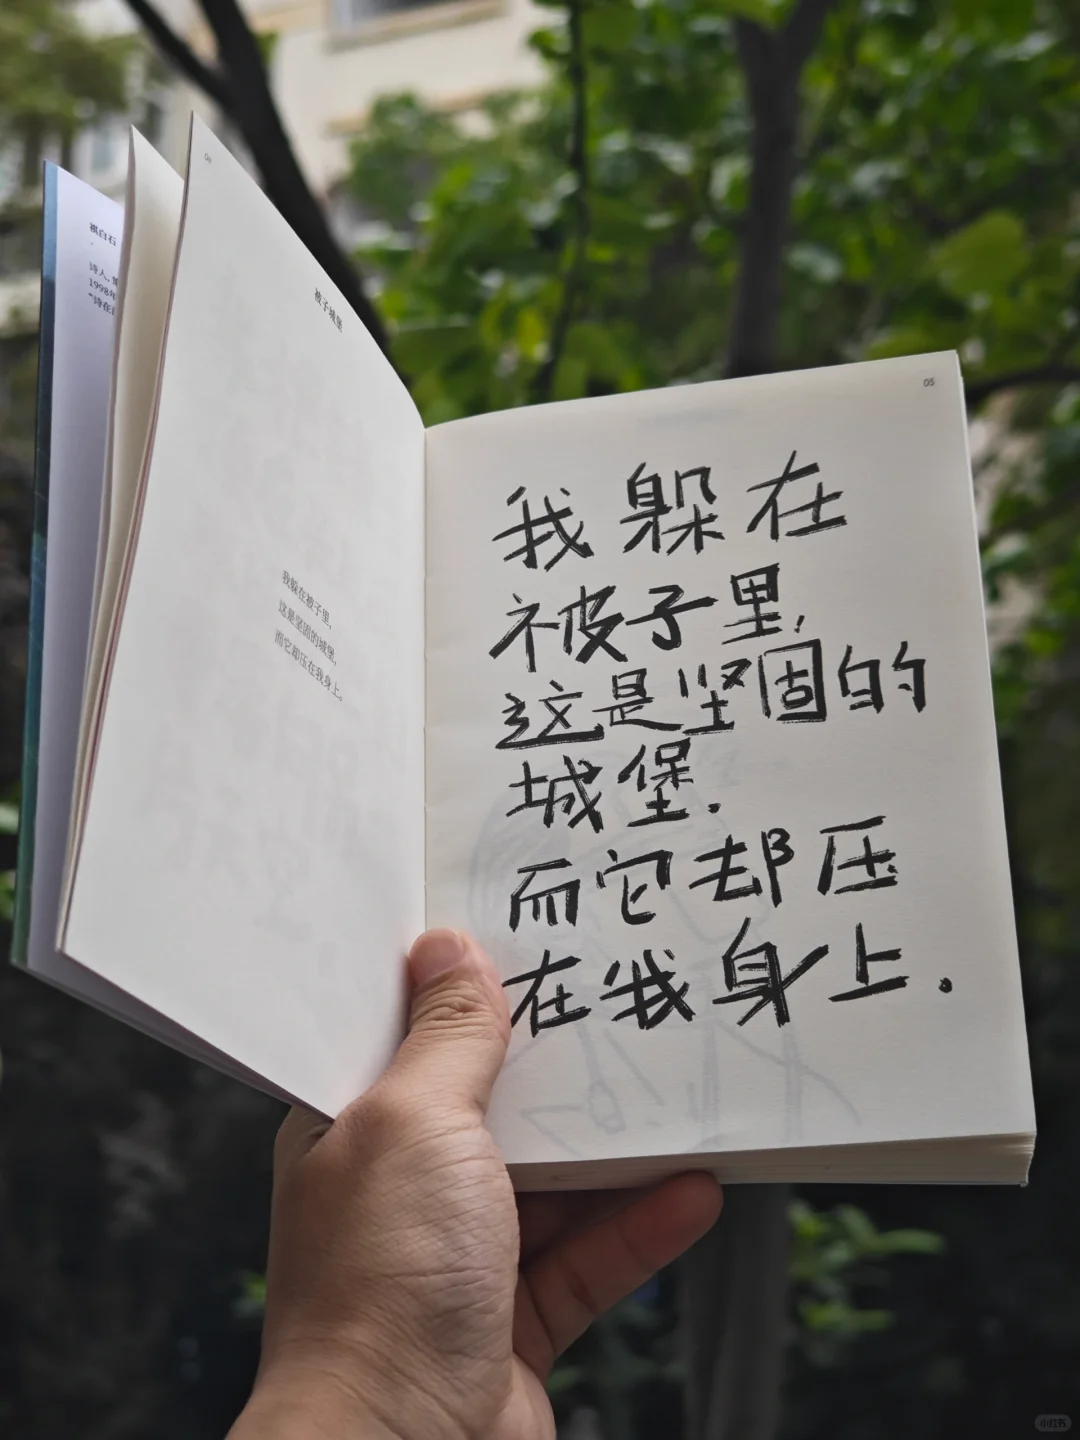 祺白石
诗人，
1998年
“诗在
04
被子城堡
我躲在被子里，
这是坚固的城堡，
而它却压在我身上。
05
我躲在
被子里，
这是坚固的
城堡.
而它却压
在我身上.
小红书